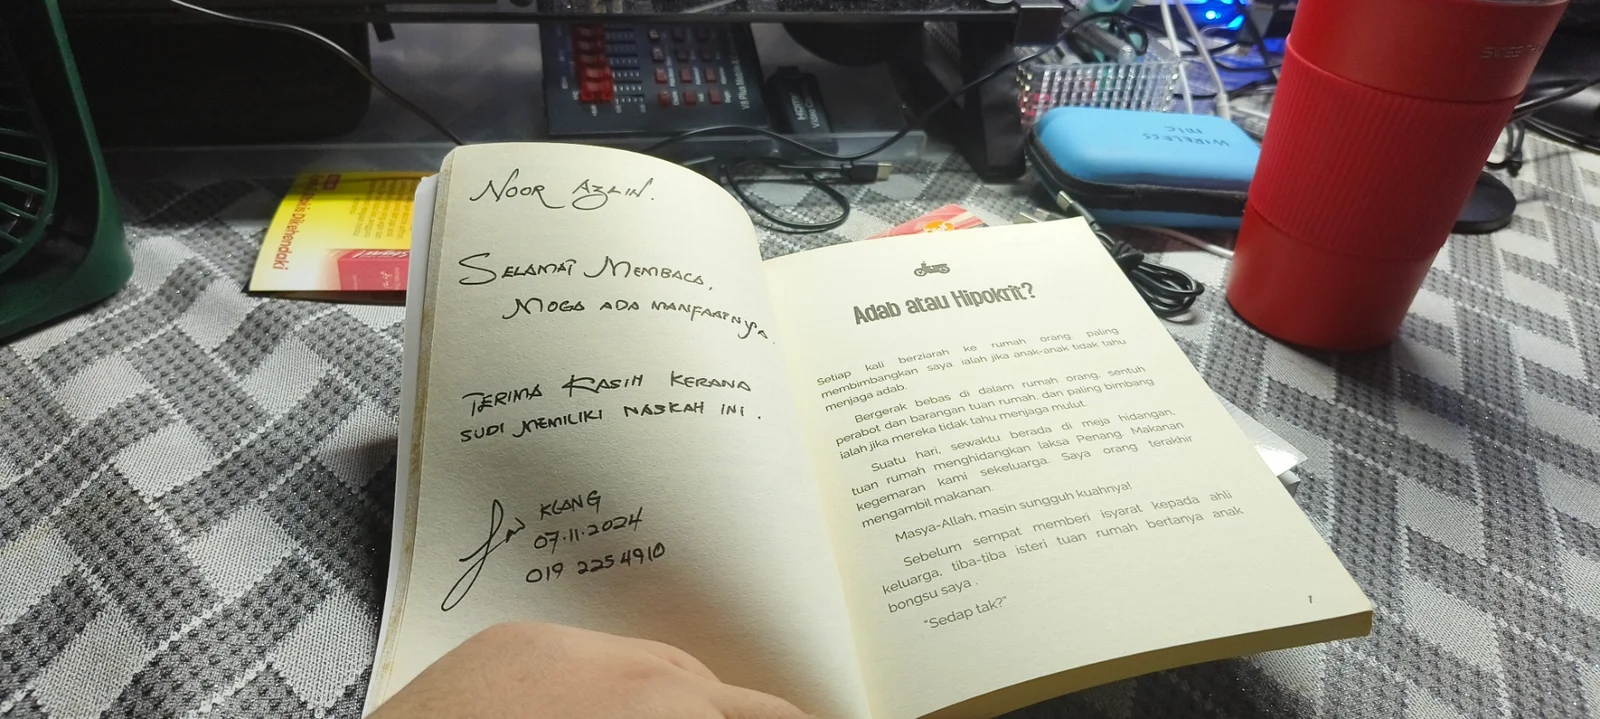 NOOR AZLIN.
SELAMAT MEMBACA,
MOGA ADA MANFAATNYA
TERIMA KASIH KERANA
SUDI MEMILIKI NASKAH INI.
KLANG
07.11.2024
019 2254910
Adab atau Hipokrit?
Setiap kali berziarah ke rumah orang, paling
membimbangkan saya ialah jika anak-anak tidak tahu
menjaga adab.
Bergerak bebas di dalam rumah orang, sentuh
perabot dan barangan tuan rumah, dan paling bimbang
ialah jika mereka tidak tahu menjaga mulut.
Suatu hari, sewaktu berada di meja hidangan,
tuan rumah menghidangkan laksa Penang. Makanan
kegemaran kami sekeluarga. Saya orang terakhir
mengambil makanan.
Masya-Allah, masin sungguh kuahnya!
Sebelum sempat memberi isyarat kepada ahli
keluarga, tiba-tiba isteri tuan rumah bertanya anak
bongsu saya .
"Sedap tak?"
1
WIRELESS
MIC
HDMI
Dikehendaki